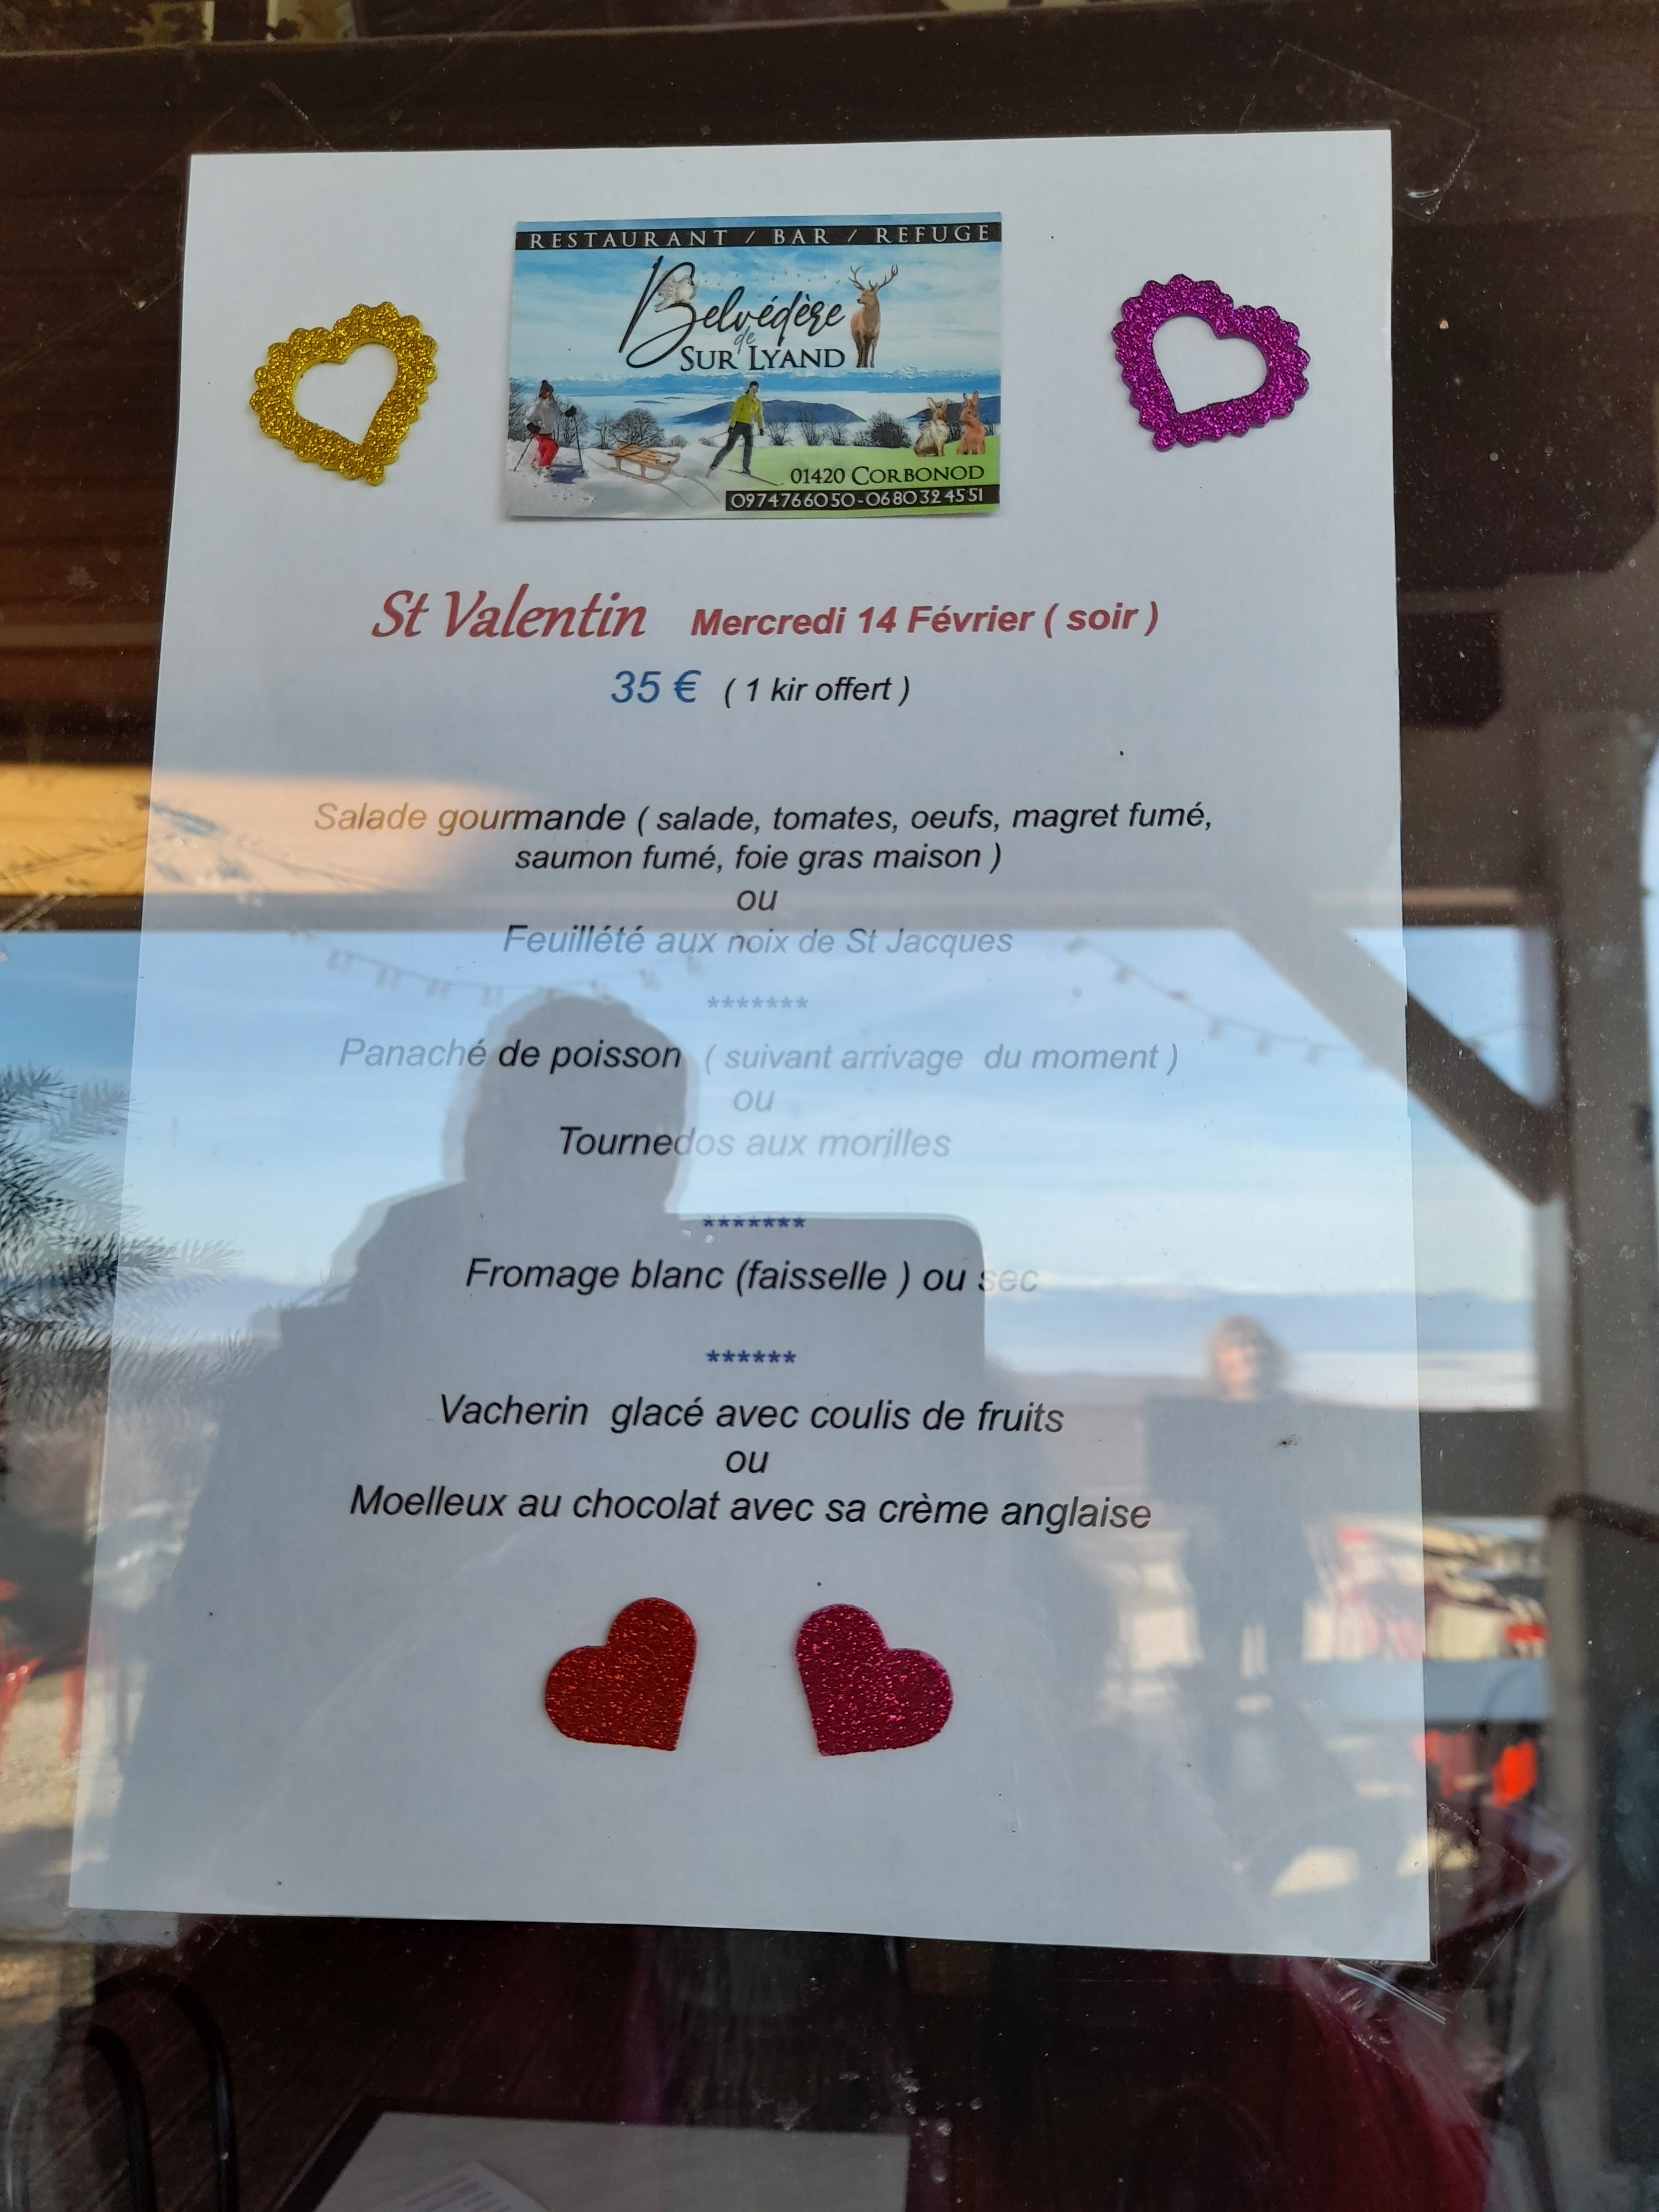 RESTAURANT / BAR / REFUGE
Belvédère
de
SUR LYAND
01420 CORBONOD
0974766050-0680324551
St Valentin Mercredi 14 Février ( soir )
35 € ( 1 kir offert )
Salade gourmande ( salade, tomates, oeufs, magret fumé,
saumon fumé, foie gras maison )
ou
Feuillété aux noix de St Jacques
*******
Panaché de poisson ( suivant arrivage du moment )
ou
Tournedos aux morilles
*******
Fromage blanc (faisselle ) ou sec
******
Vacherin glacé avec coulis de fruits
ou
Moelleux au chocolat avec sa crème anglaise